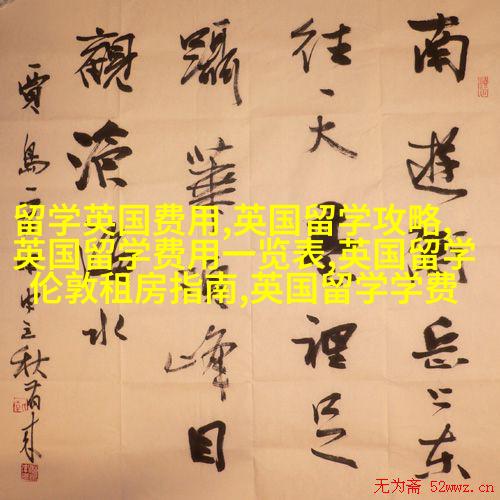 南遊岳上東
往天裡足
躡華峰目
觀滄海水
賈島
立秋
留学英国费用,英国留学攻略,
英国留学费用一览表,英国留学
伦敦租房指南,英国留学学费
无为斋 52wwz.cn